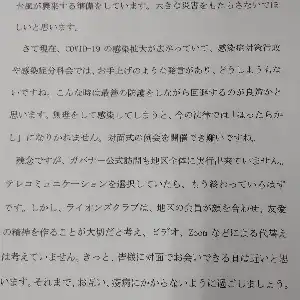 台風が襲来する準備をしています。大きな災害をもたらさないでほ
しいと思います。
さて現在、COVID-19の感染拡大が広がっていて、感染症対策行政
や感染症分科会では、お手上げのような発言があり、どうしようもな
いですね。こんな時は最善の防護をしながら回避するのが良策かと
思います。無理をして感染してしまうと、今の法律では「ほったらか
し」になりかねません。対面式の例会を開催でき難いですね。
残念ですが、ガバナー公式訪問も地区全体に実行出来ていません。
テレコミュニケーションを選択していたら、もう終わっているはず
です。しかし、ライオンズクラブは、地区の会員が顔を合わせ、友愛
の精神を作ることが大切だと考え、ビデオ、Zoomなどによる代替え
は考えていません。きっと、皆様に対面でお会いできる日は近いと思
います。それまで、お互い、疫病にかからないように過ごしましょう。